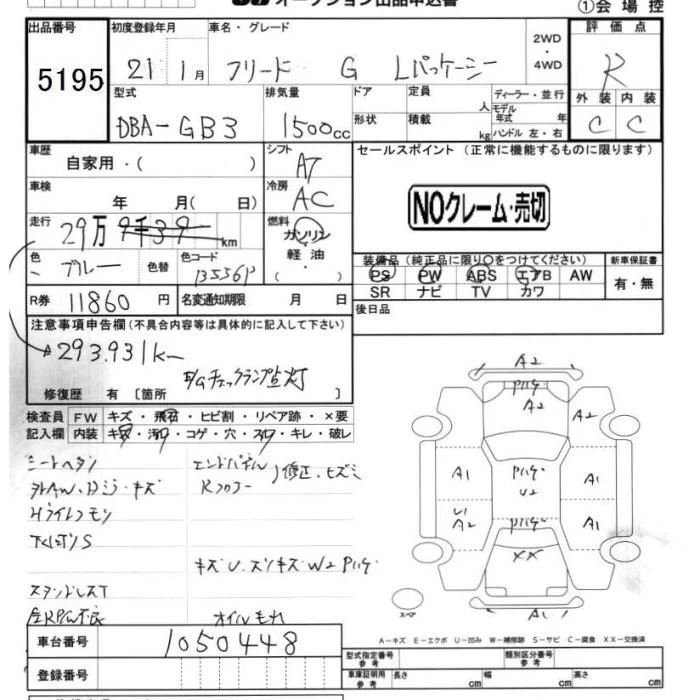 オークション出品申込書
①会場控
出品番号 初度登録年月 車名・グレード 2WD・4WD 評価点
5195 21 1月 フリード G Lパッケージ R
型式 排気量 ドア 定員 人 ディーラー・並行 外装 内装
DBA-GB3 1500cc 形状 積載 kg モデル年式 年 ハンドル 左・右 C C
車歴 自家用・( ) シフト AT セールスポイント (正常に機能するものに限ります)
車検 年 月( 日) 冷房 AC NOクレーム・売切
走行 29万 9千39 km 燃料 ガソリン・軽油・( )
色 ブルー 色替 色コード B556P 装備品 (純正品に限り○をつけてください) 新車保証書
PS PW ABS エアB AW 有・無
SR ナビ TV カワ
R券 11860円 名変通知期限 月 日 後日品
注意事項申告欄(不具合内容等は具体的に記入して下さい)
293.931k
E/Gチェックランプ点灯
修復歴 有 〔箇所 〕
検査員 FW キズ・飛石・ヒビ割・リペア跡・×要
記入欄 内装 キズ・汚れ・コゲ・穴・スレ・キレ・破レ
シートヘタリ エンドパネル
Rフロアー 修正・ヒズミ
キズU.スリキズW2 Pハゲ
オイルモレ
A2
Pハゲ
A2
A2
A1 Pハゲ U2 A1
U1
A2 Pハゲ A1
XX
A1
スペア
A-キズ E-エクボ U-凹み W-補修跡 S-サビ C-腐食 XX-交換済
車台番号 1050448
型式指定番号 参考 類別区分番号 参考
登録番号 車庫証明用 参考 長さ cm 幅 cm 高さ cm